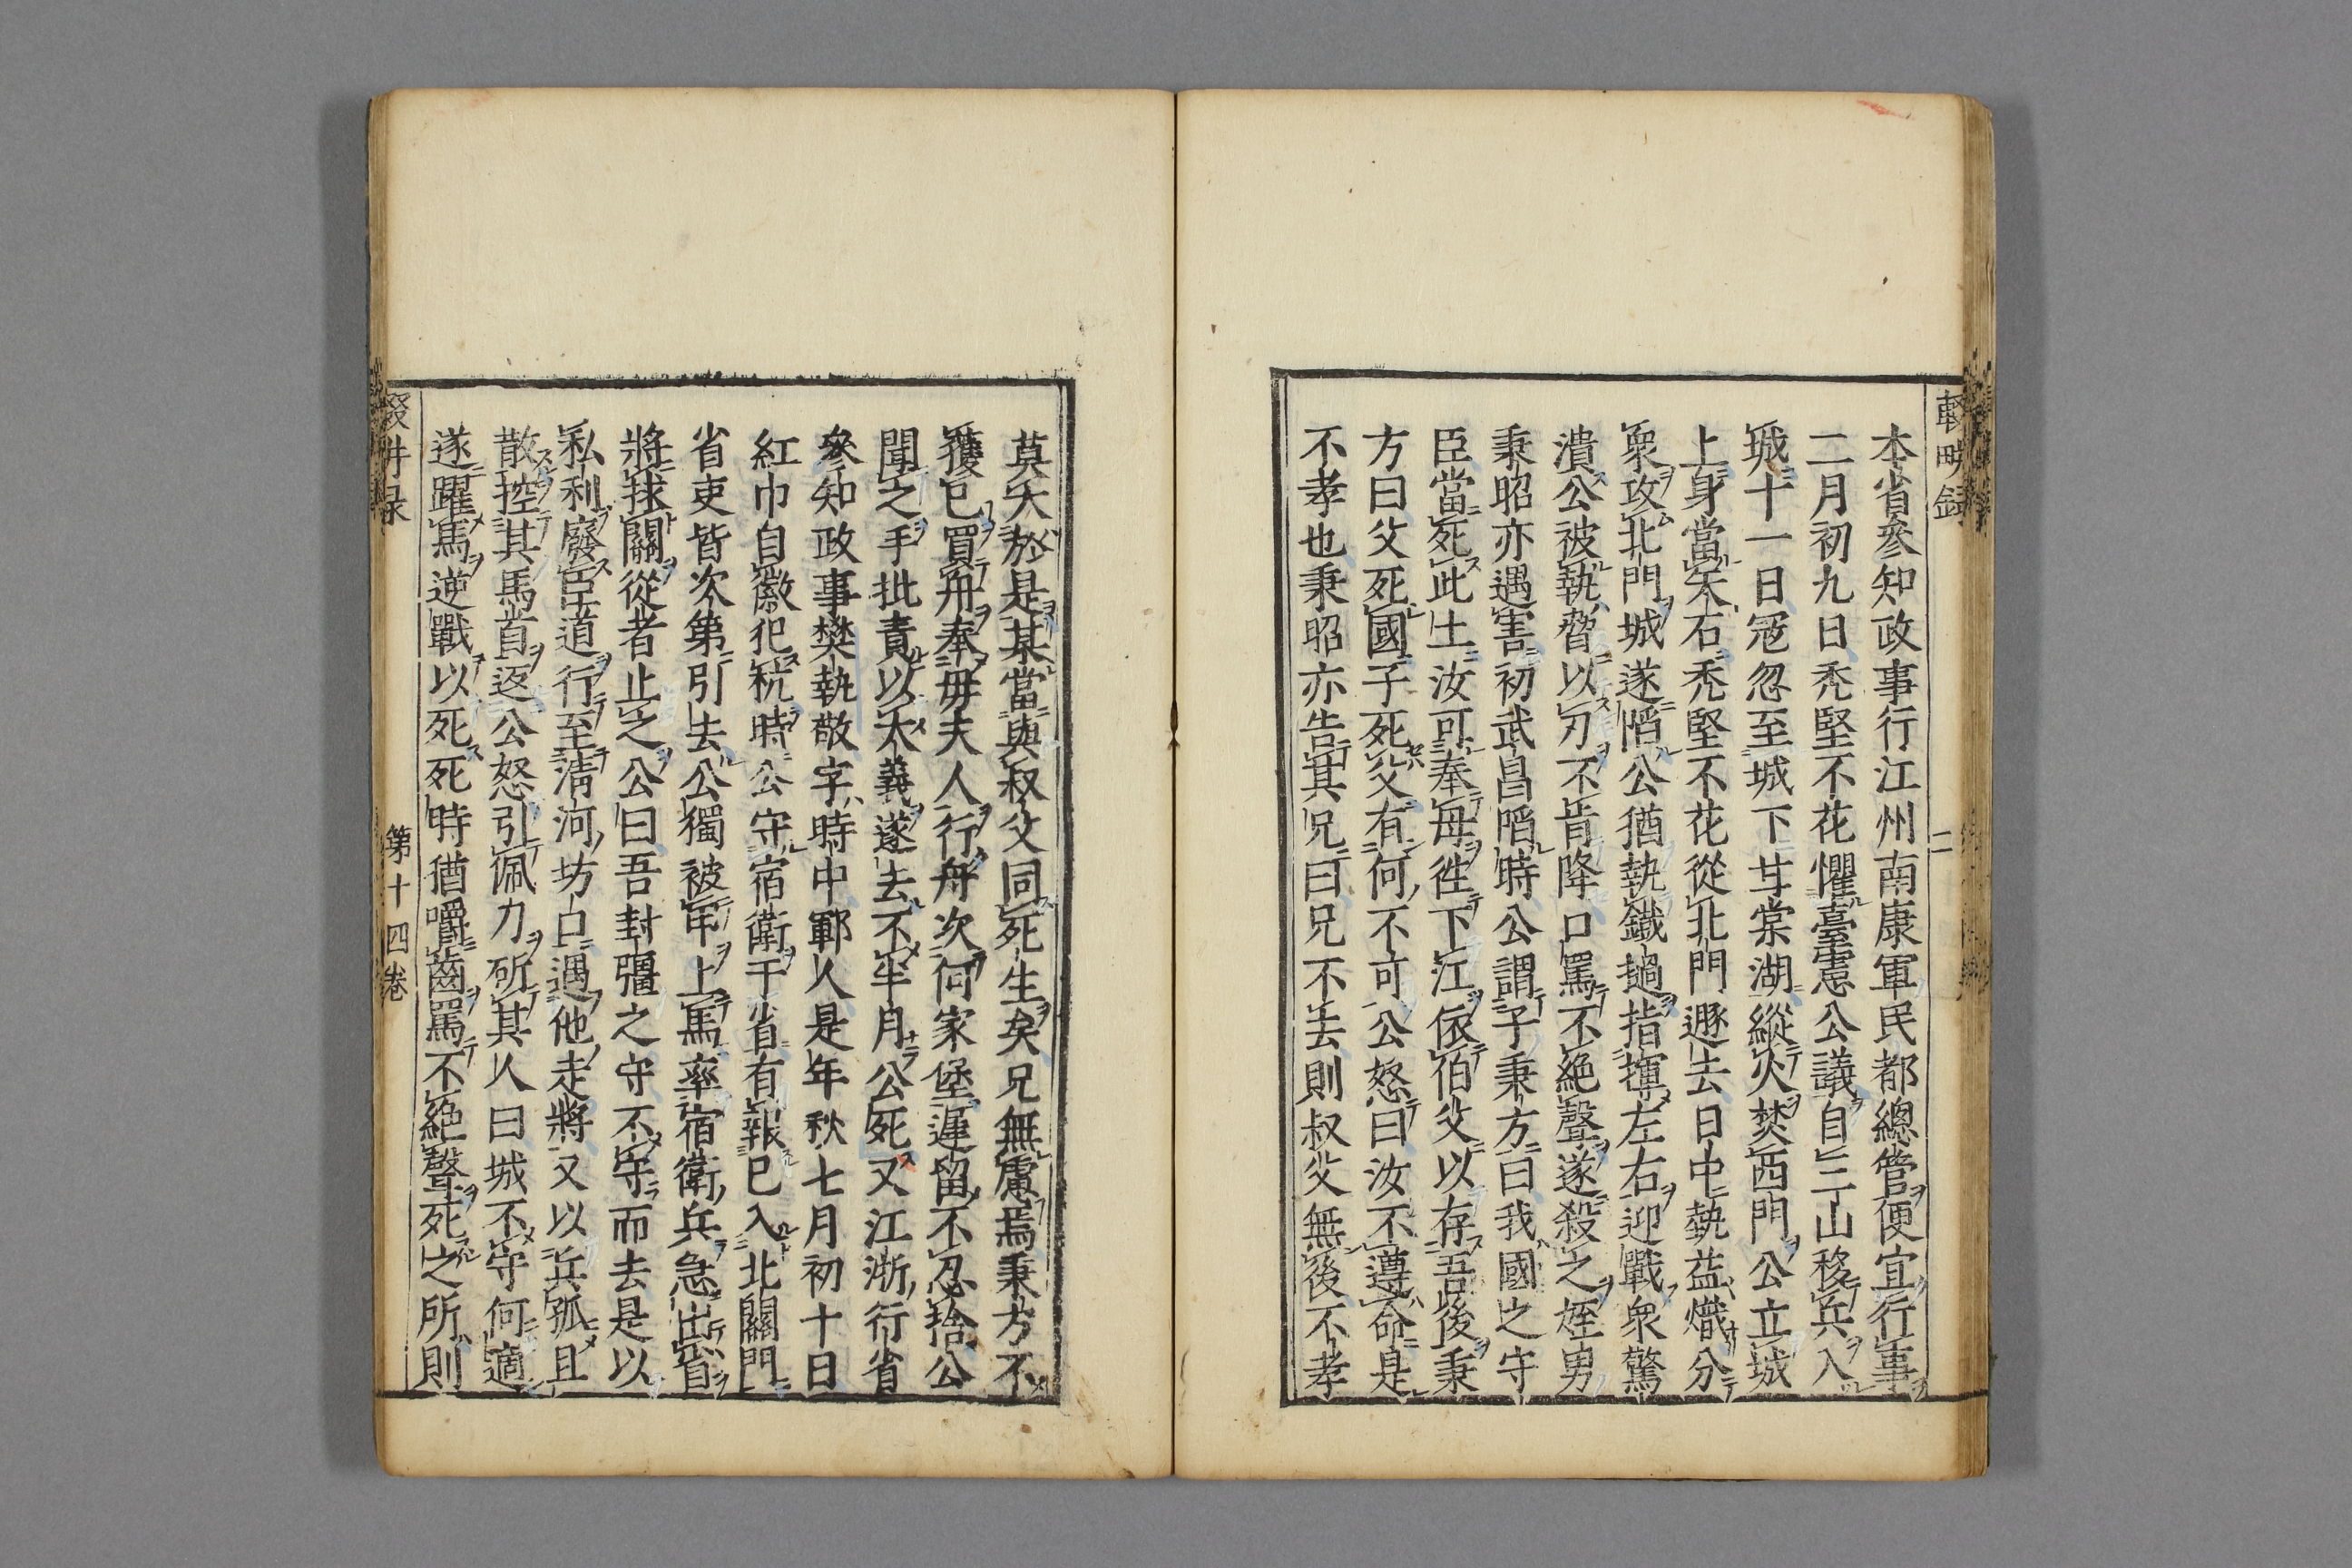 輟畊録
二
本省參知政事行江州南康軍民都總管便宜行事
二月初九日禿堅不花懼臺憲公議自二山移兵入
城十一日冦忽至城下甘棠湖縱火焚西門公立城
上身當矢石禿堅不花從北門遯去日中執益熾分
衆攻北門城遂陷公猶執鐵撾指揮左右迎戰衆驚
潰公被執脅以刃不肯降口罵不絶聲遂殺之姪男
秉昭亦遇害初武昌陷時公謂子秉方曰我國之守
臣當死此土汝可奉母徃下江依伯父以存吾後秉
方曰父死國子死父有何不可公怒曰汝不遵命是
不孝也秉昭亦告其兄曰兄不去則叔父無後不孝
莫大於是某當與叔父同死生矣兄無慮焉秉方不
獲已買舟奉毋夫人行舟次何家堡遲留不忍捨公
聞之手批責以大義遂去不半月公死又江浙行省
參知政事樊執敬字時中鄆人是年秋七月初十日
紅巾自徽犯杭時公守宿衛于省有報已入北關門
省吏皆次第引去公獨被甲上馬率宿衛兵急出省
將捄關從者止之公曰吾封疆之守不守而去是以
私利廢臣道行至清河坊口遇他走將又以兵孤且
散控其馬首返公怒引佩刀斫其人曰城不守何適
遂躍馬逆戰以死死時猶嚼齒罵不絶聲死之所則
輟畊录
第十四卷